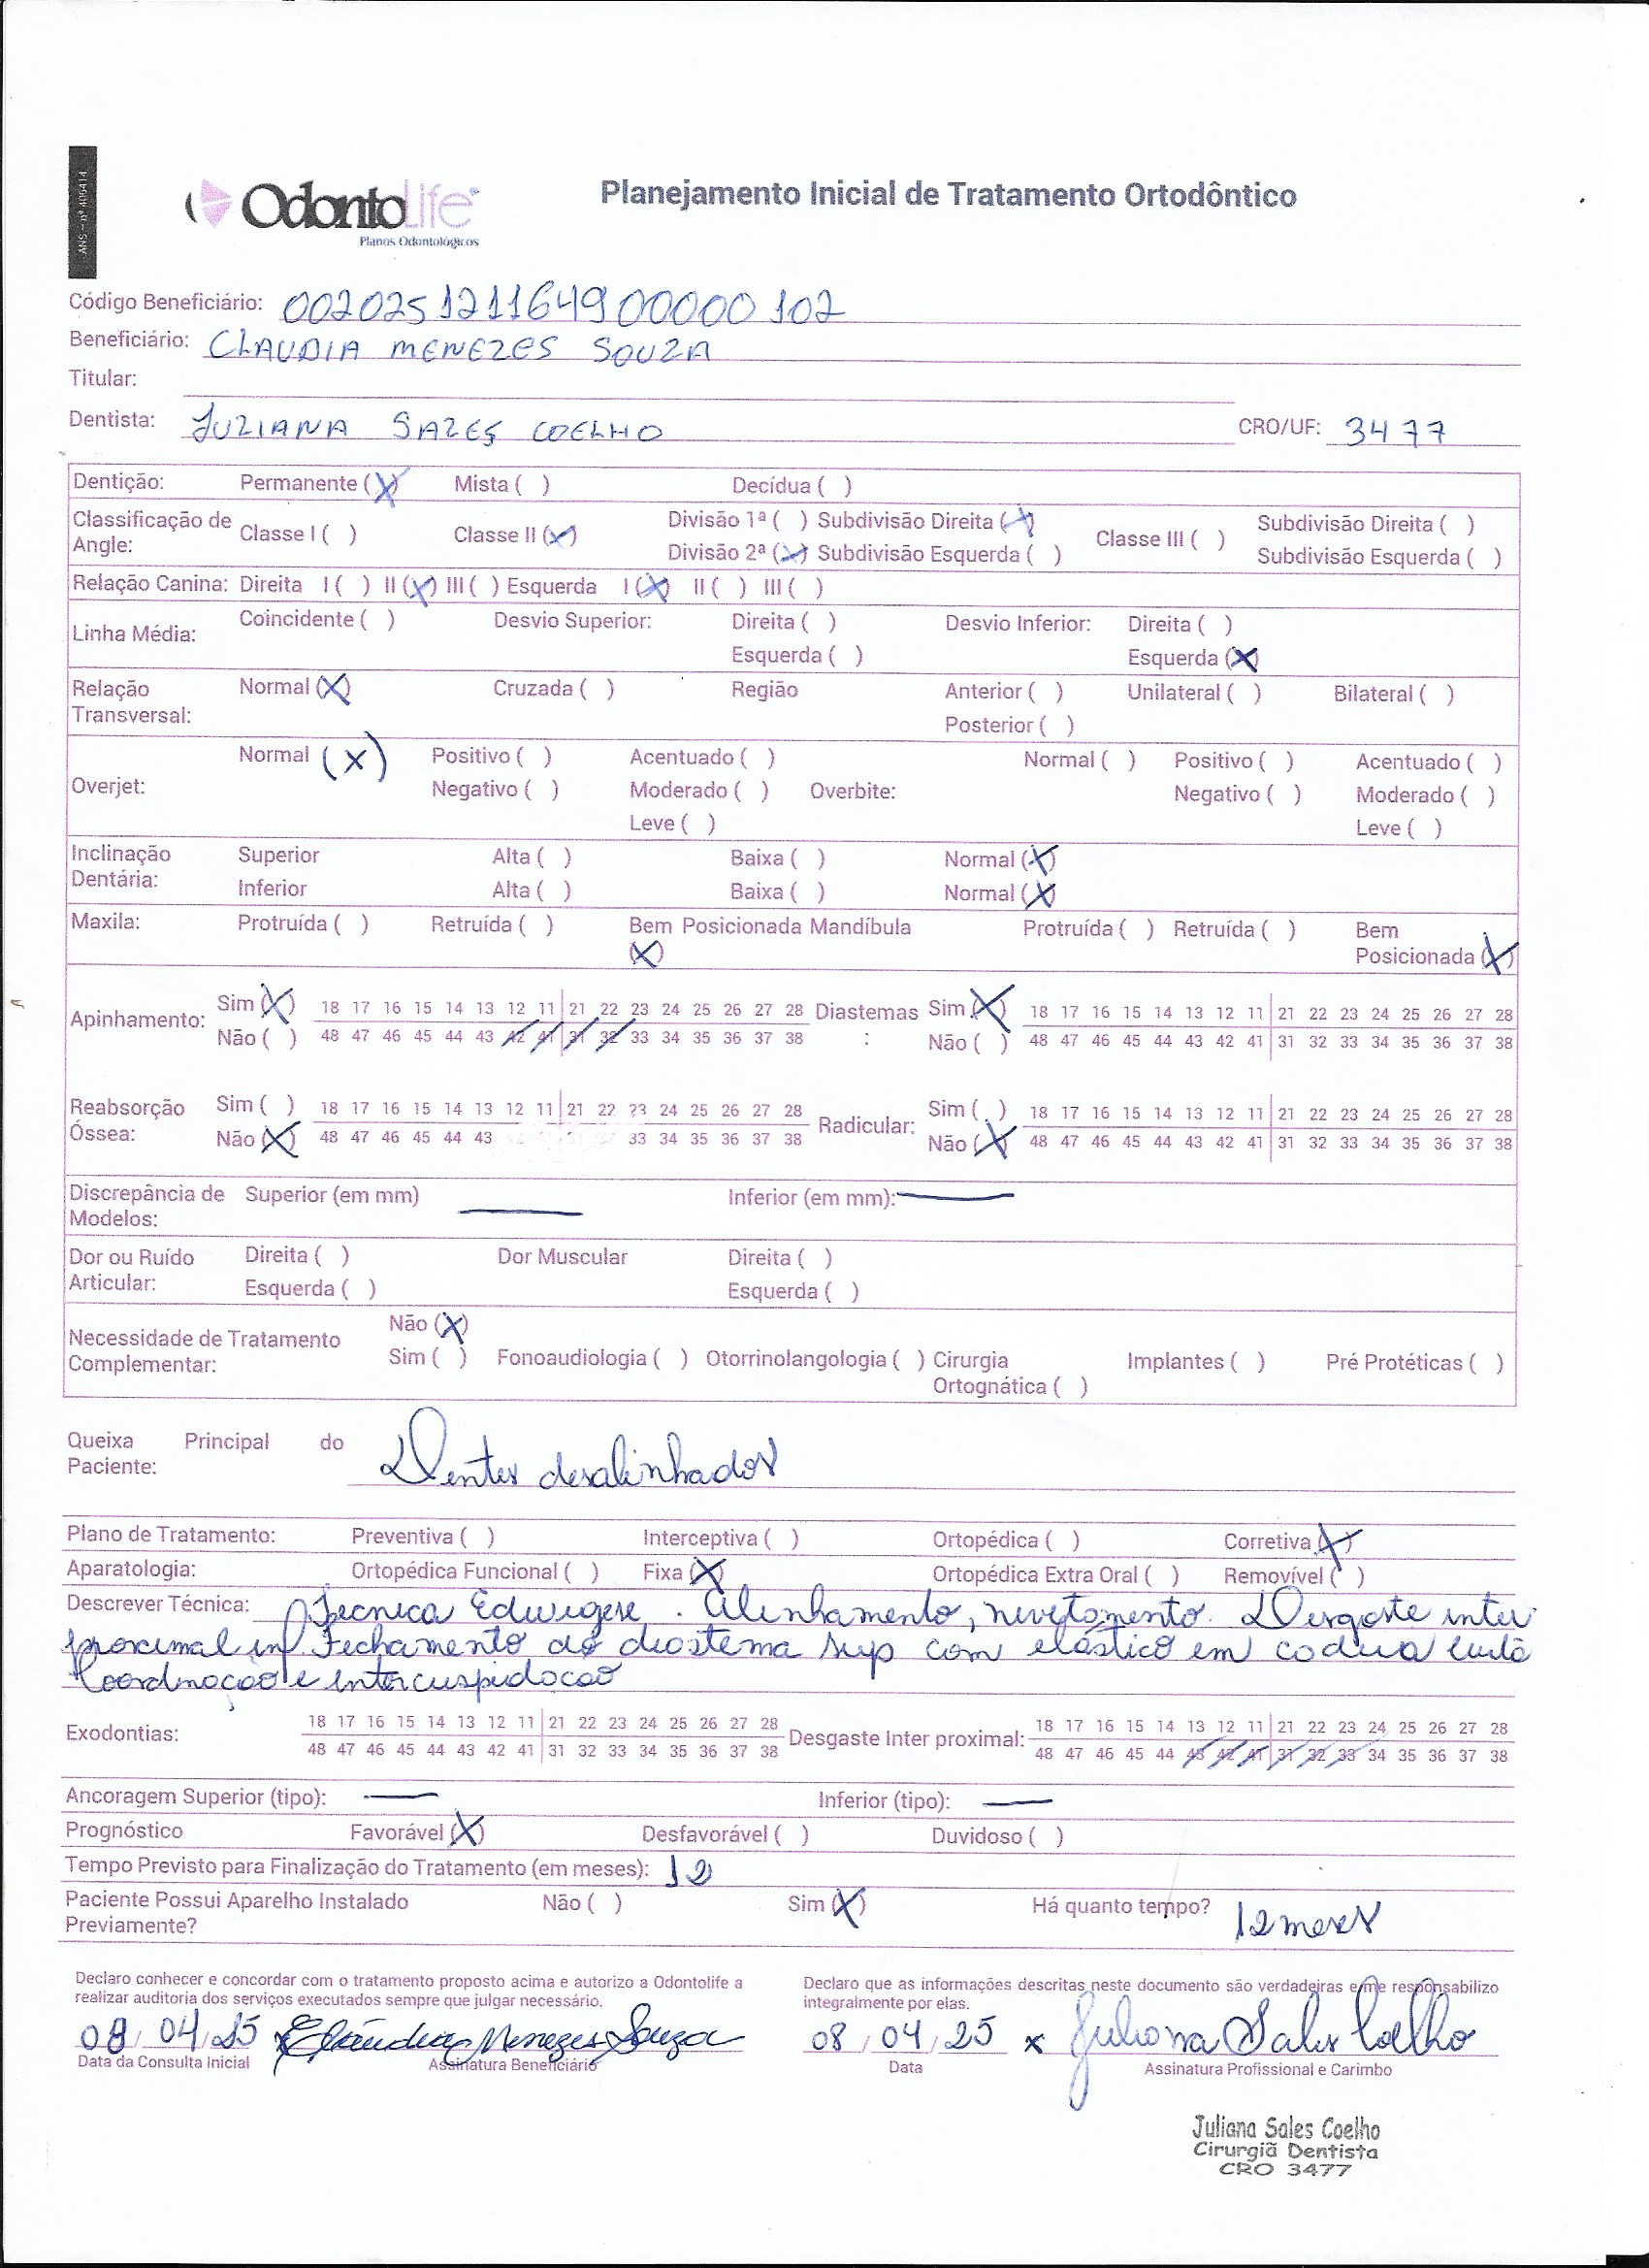 ANS - nº 406414
OdontoLife®
Planos Odontológicos
Planejamento Inicial de Tratamento Ortodôntico
Código Beneficiário: 002025121164900000102
Beneficiário: CLAUDIA MENEZES SOUZA
Titular:
Dentista: JULIANA SALES COELHO CRO/UF: 3477
Dentição: Permanente (X) Mista ( ) Decídua ( )
Classificação de Angle: Classe I ( ) Classe II (X) Divisão 1ª ( ) Subdivisão Direita (X) Classe III ( ) Subdivisão Direita ( )
Divisão 2ª (X) Subdivisão Esquerda ( ) Subdivisão Esquerda ( )
Relação Canina: Direita I ( ) II (X) III ( ) Esquerda I (X) II ( ) III ( )
Linha Média: Coincidente ( ) Desvio Superior: Direita ( ) Desvio Inferior: Direita ( )
Esquerda ( ) Esquerda (X)
Relação Transversal: Normal (X) Cruzada ( ) Região Anterior ( ) Unilateral ( ) Bilateral ( )
Posterior ( )
Overjet: Normal (X) Positivo ( ) Acentuado ( ) Normal ( ) Positivo ( ) Acentuado ( )
Negativo ( ) Moderado ( ) Overbite: Negativo ( ) Moderado ( )
Leve ( ) Leve ( )
Inclinação Dentária: Superior Alta ( ) Baixa ( ) Normal (X)
Inferior Alta ( ) Baixa ( ) Normal (X)
Maxila: Protruída ( ) Retruída ( ) Bem Posicionada (X) Mandíbula Protruída ( ) Retruída ( ) Bem Posicionada (X)
Apinhamento: Sim (X) 18 17 16 15 14 13 12 11 21 22 23 24 25 26 27 28 Diastemas : Sim (X) 18 17 16 15 14 13 12 11 21 22 23 24 25 26 27 28
Não ( ) 48 47 46 45 44 43 42 41 31 32 33 34 35 36 37 38 Não ( ) 48 47 46 45 44 43 42 41 31 32 33 34 35 36 37 38
Reabsorção Óssea: Sim ( ) 18 17 16 15 14 13 12 11 21 22 23 24 25 26 27 28 Radicular: Sim ( ) 18 17 16 15 14 13 12 11 21 22 23 24 25 26 27 28
Não (X) 48 47 46 45 44 43 33 34 35 36 37 38 Não (X) 48 47 46 45 44 43 42 41 31 32 33 34 35 36 37 38
Discrepância de Modelos: Superior (em mm) — Inferior (em mm): —
Dor ou Ruído Articular: Direita ( ) Dor Muscular Direita ( )
Esquerda ( ) Esquerda ( )
Necessidade de Tratamento Complementar: Não (X)
Sim ( ) Fonoaudiologia ( ) Otorrinolangologia ( ) Cirurgia Ortognática ( ) Implantes ( ) Pré Protéticas ( )
Queixa Principal do Paciente: Dentes desalinhados
Plano de Tratamento: Preventiva ( ) Interceptiva ( ) Ortopédica ( ) Corretiva (X)
Aparatologia: Ortopédica Funcional ( ) Fixa (X) Ortopédica Extra Oral ( ) Removível ( )
Descrever Técnica: Técnica Edwigese. Alinhamento, nivelamento. Desgaste inter
proximal inf Fechamento do diastema sup com elástico em cadeia
Coordenação e intercuspidação
Exodontias: 18 17 16 15 14 13 12 11 21 22 23 24 25 26 27 28 Desgaste Inter proximal: 18 17 16 15 14 13 12 11 21 22 23 24 25 26 27 28
48 47 46 45 44 43 42 41 31 32 33 34 35 36 37 38 48 47 46 45 44 43 42 41 31 32 33 34 35 36 37 38
Ancoragem Superior (tipo): — Inferior (tipo): —
Prognóstico Favorável (X) Desfavorável ( ) Duvidoso ( )
Tempo Previsto para Finalização do Tratamento (em meses): 12
Paciente Possui Aparelho Instalado Previamente? Não ( ) Sim (X) Há quanto tempo? 12 meses
Declaro conhecer e concordar com o tratamento proposto acima e autorizo a Odontolife a
realizar auditoria dos serviços executados sempre que julgar necessário.
08/04/25 x Cláudia Menezes Souza
Data da Consulta Inicial Assinatura Beneficiário
Declaro que as informações descritas neste documento são verdadeiras e me responsabilizo
integralmente por elas.
08/04/25 x Juliana Sales Coelho
Data Assinatura Profissional e Carimbo
Juliana Sales Coelho
Cirurgiã Dentista
CRO 3477